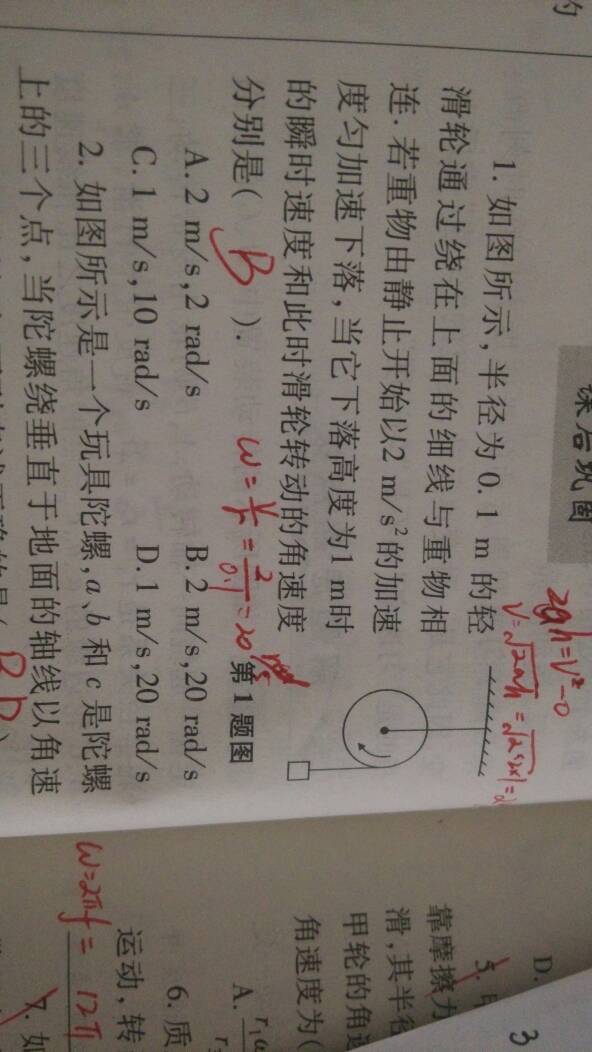 的
课后巩固
1. 如图所示,半径为0.1 m 的轻
滑轮通过绕在上面的细线与重物相
连.若重物由静止开始以2 m/s²的加速
度匀加速下落,当它下落高度为1 m时
的瞬时速度和此时滑轮转动的角速度
分别是( B ).
2gh=v²-0
v=√2ah=√2×2×1=2
ω=v/r=2/0.1=20 rad/s
第1题图
A. 2 m/s,2 rad/s
B. 2 m/s,20 rad/s
C. 1 m/s,10 rad/s
D. 1 m/s,20 rad/s
2. 如图所示是一个玩具陀螺,a、b 和 c 是陀螺
上的三个点,当陀螺绕垂直于地面的轴线以角速
B D )
3
D.
5.
靠摩擦力
滑,其半径
甲轮的角速
角速度为(
A. r₁ω
6. 质
运动,转
ω=2πf= 12π
7. 如